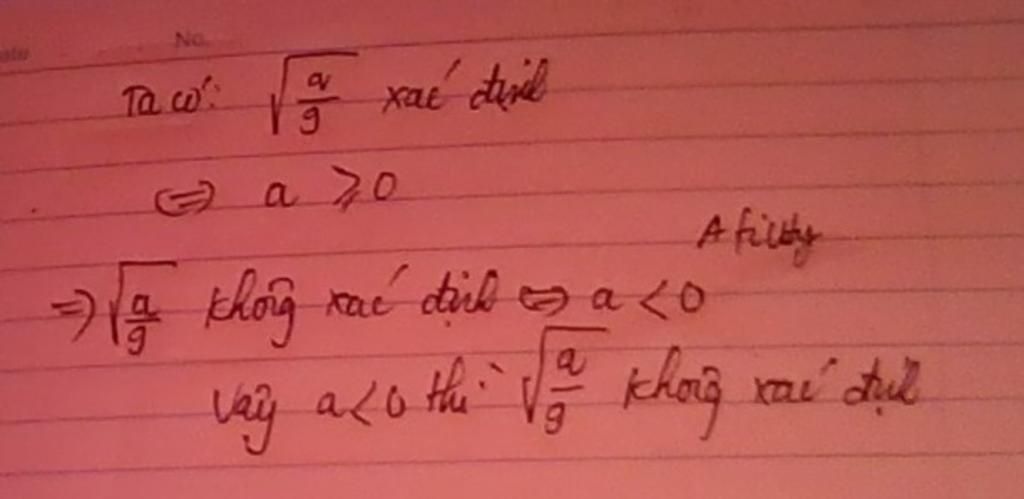 No.
Ta có: √(a/9) xác định
⇔ a ⩾ 0
⇒ √(a/9) không xác định ⇔ a < 0
Vậy a < 0 thì √(a/9) không xác định